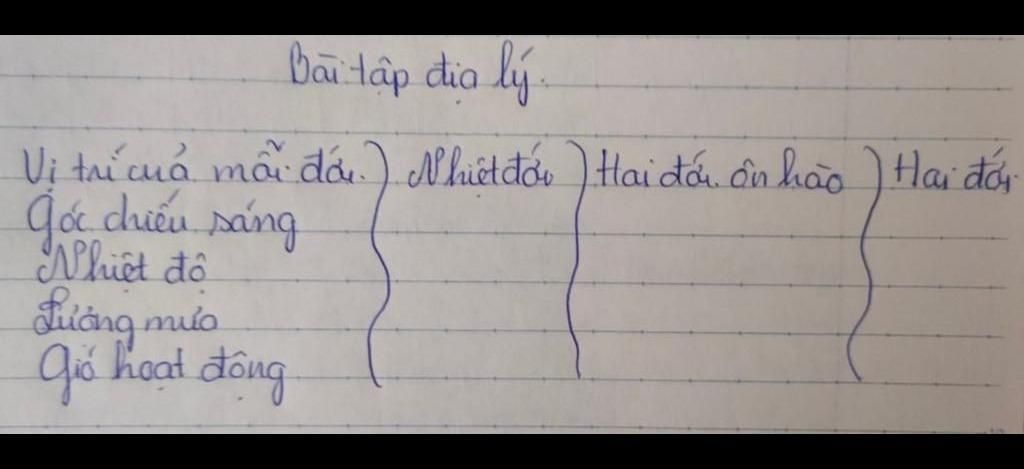 Bài tập địa lý.
Vị trí cuả mỗi đới. Nhiệt đới Hai đới ôn hào Hai đới
góc chiếu sáng
Nhiệt độ
Lường mưa
Gió hoạt động